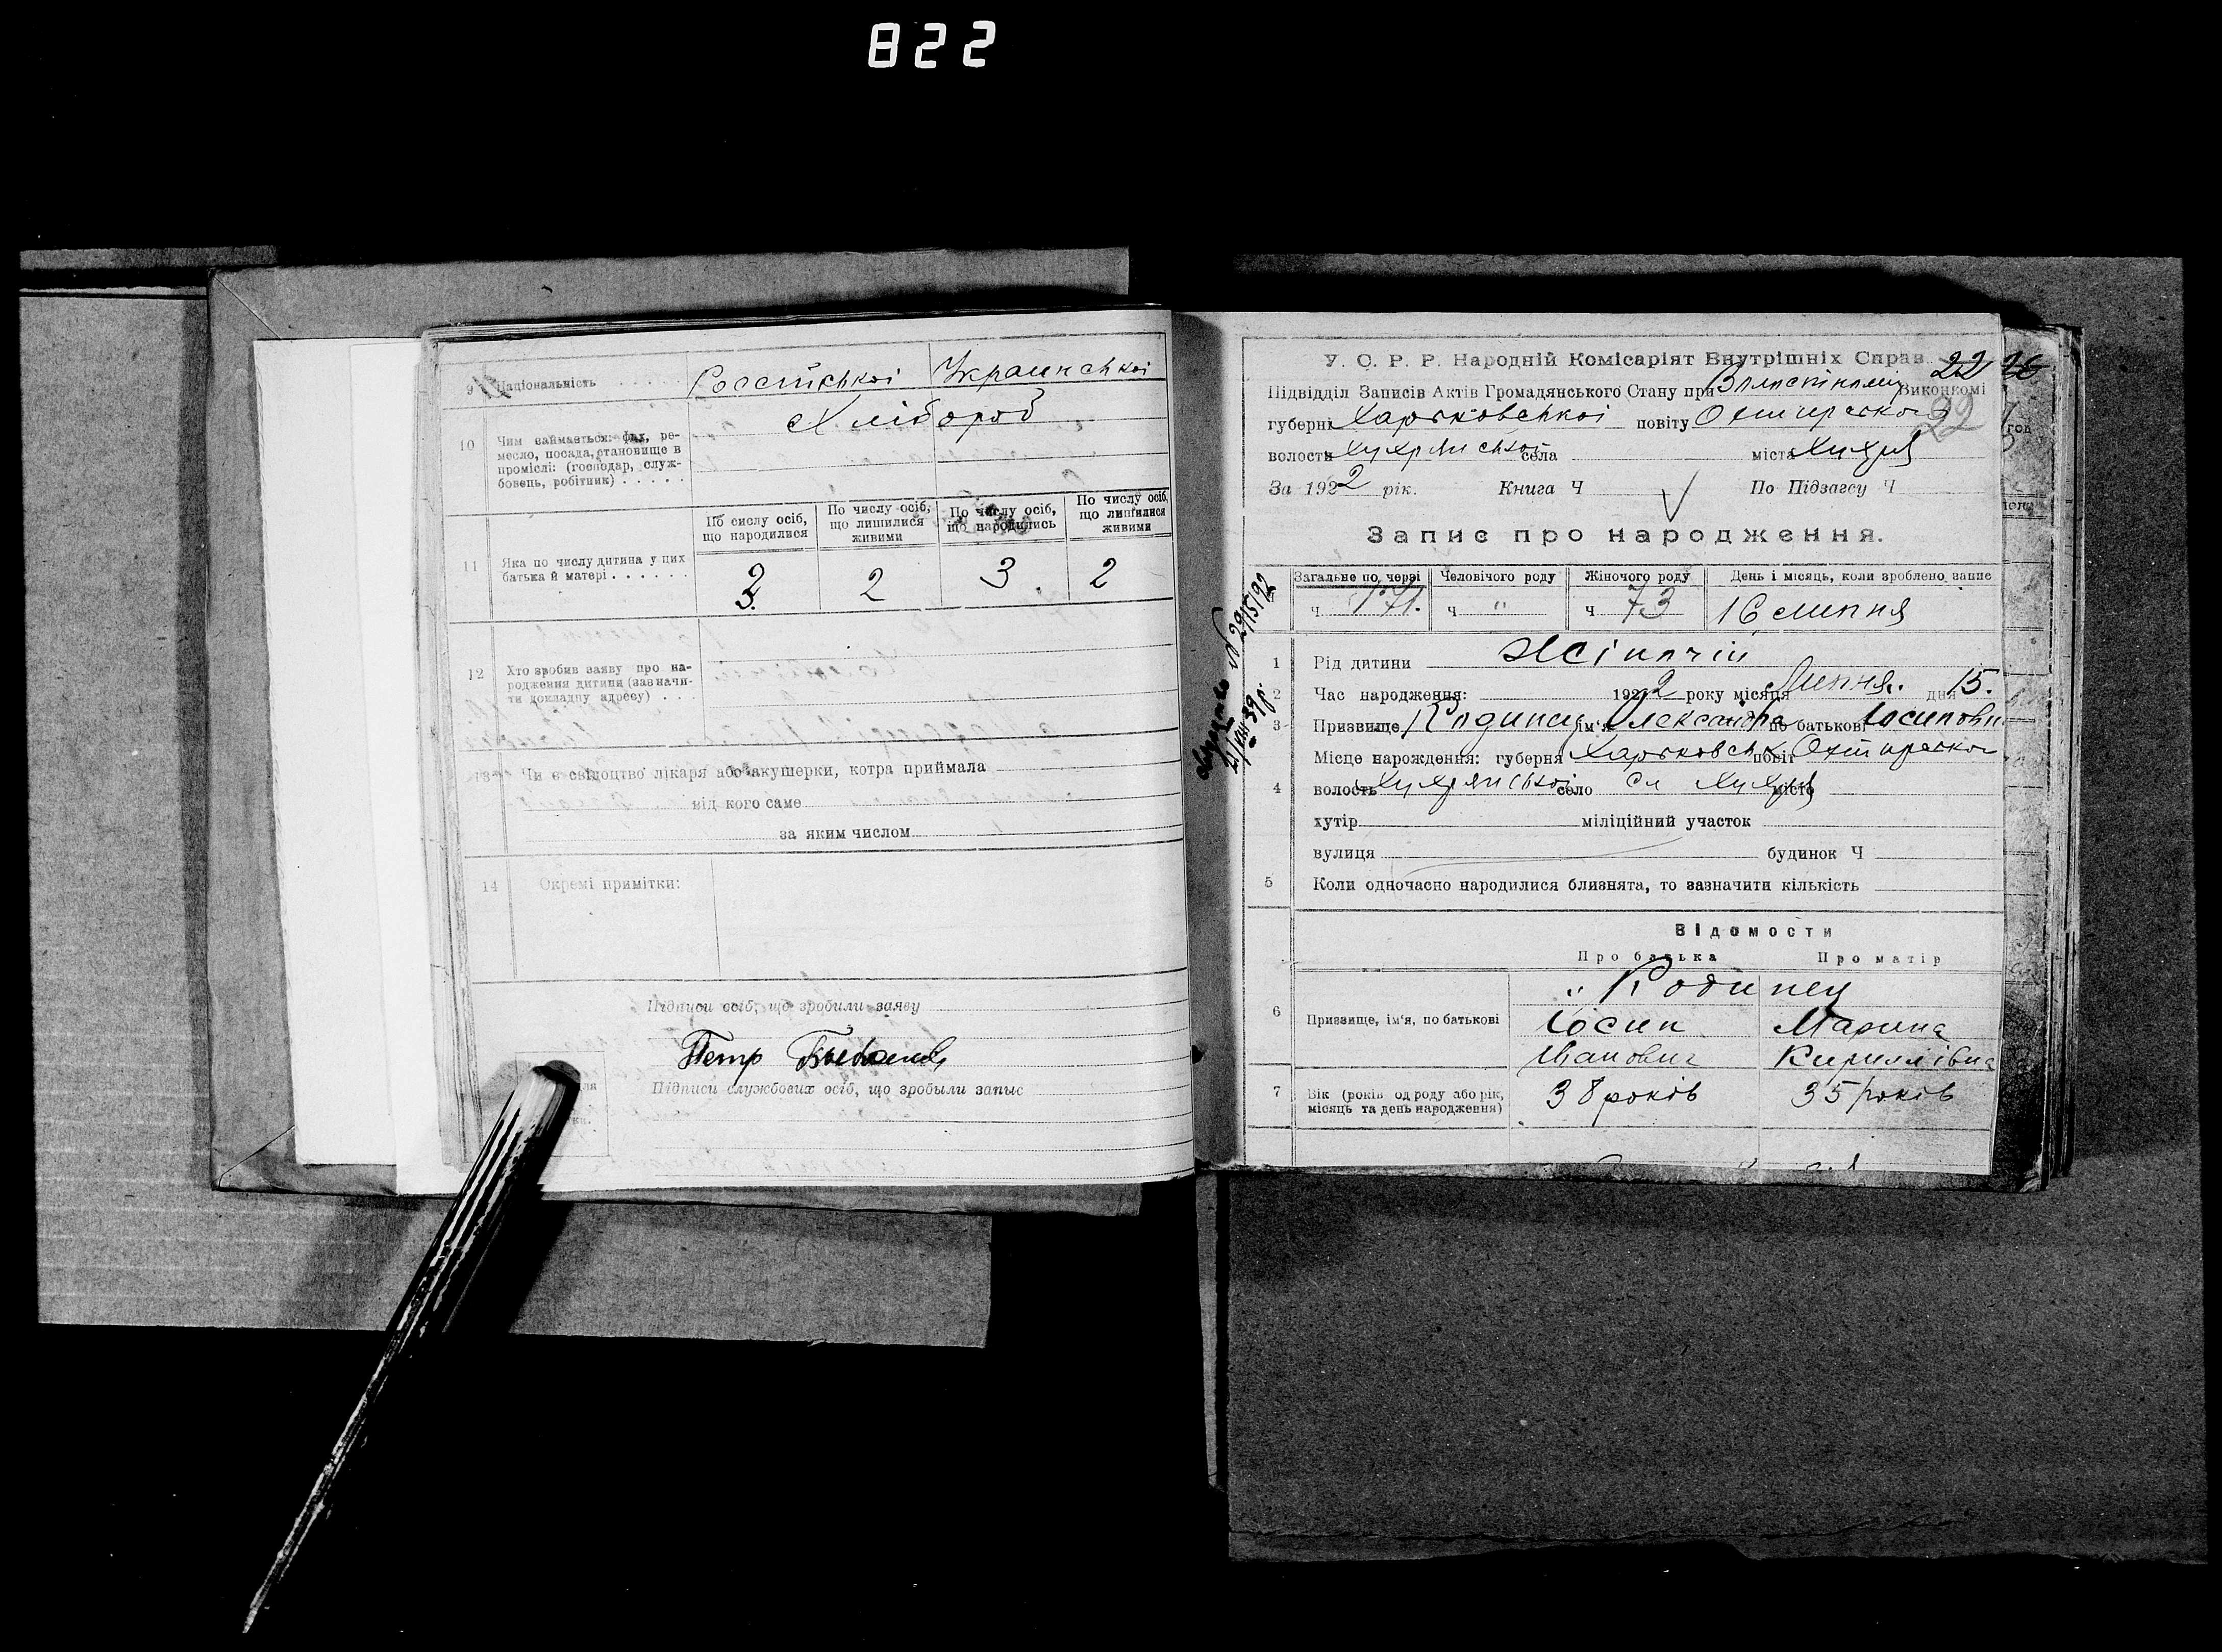 822
9 Національність . . . . Російської Української
10 Чим займається: фах, ре-
месло, посада, становище в
промислі: (господар, служ-
бовець, робітник) . . . . .
Хлібороб
11 Яка по числу дитина у цих
батька й матері . . . . . .
По числу осіб, що народилися
По числу осіб, що лишилися живими
По числу осіб, що народились
По числу осіб, що лишилися живими
3 2 3 2
12 Хто зробив заяву про на-
родження дитини (зазначи-
ти докладну адресу) . . .
13 Чи є свідоцтво лікаря або акушерки, котра приймала
від кого саме
за яким числом
14 Окремі примітки:
Підписи осіб, що зробили заяву
Петр
Підписи службових осіб, що зробыли запыс
У. С. Р. Р. Народній Комісаріят Внутрішніх Справ 22
Підвідділ Записів Актів Громадянського Стану при Виконкомі
губерні Харьковськоі повіту 22
волости села міста Хухря
За 1922 рік. Книга Ч По Підзагсу Ч
Запис про народження.
Загальне по черзі Человічого роду Жіночого роду День і місяць, коли зроблено запис
ч 171. ч " ч 73 16 липня
1 Рід дитини Жіночій
2 Час народження: 1922 року місяця Липня. дня 15.
3 Призвище ім'я Олександра по батькові
4 Місце нарождення: губерня Харьковськ повіт
волость село сл Хухря місто
хутір міліційний участок
вулиця будинок Ч
5 Коли одночасно народилися близнята, то зазначити кількість
Відомости
Про батька Про матір
6 Призвище, ім'я, по батькові
Родинец
Іосип Марина
Іванович Кирилівна
7 Вік (років од роду або рік,
місяць та день народження)
38 років 35 років